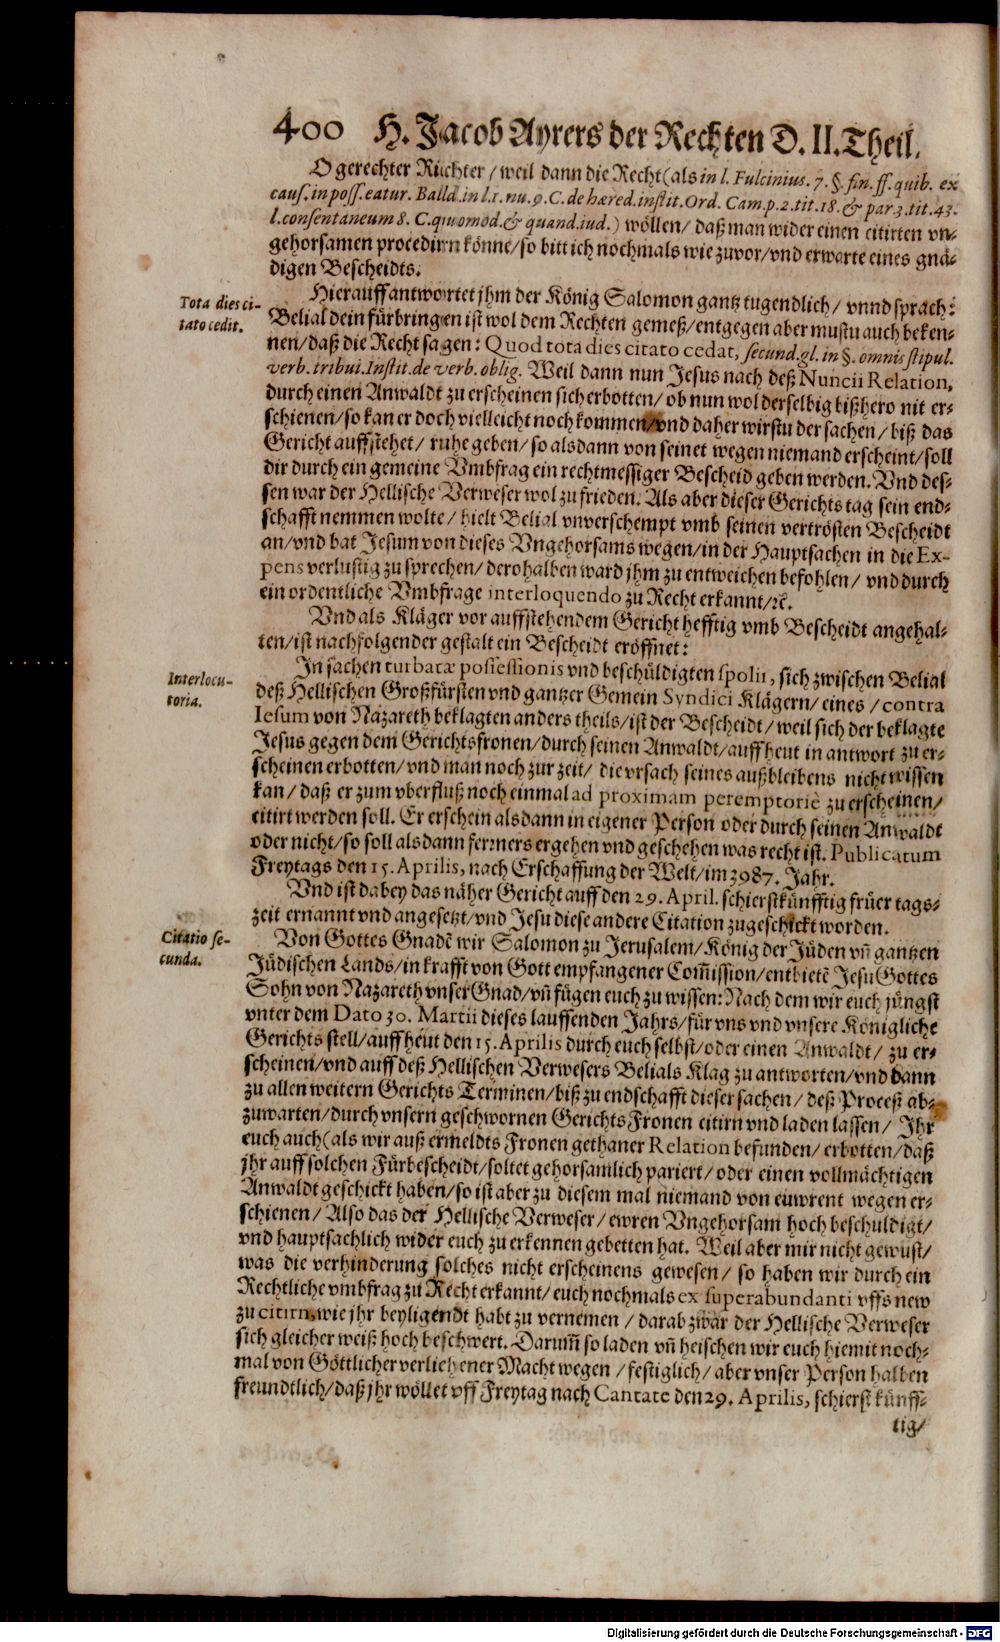 400 H. Jacob Ayrers der Rechten D. II. Theil.
O gerechter Richter / weil dann die Recht (als in l. Fulcinius. 7. §. fin. ff. quib. ex
caus. in poss. eatur. Balld. in l. 1. nu. 9. C. de hæred. instit. Ord. Cam. p. 2. tit. 18. & par. 3. tit. 43.
l. consentaneum 8. C. quomod. & quand. iud.) wöllen / daß man wider einen citirten vn-
gehorsamen procedirn könne / so bitt ich nochmals wie zuvor / vnd erwarte eines gnä-
digen Bescheidts.
Tota dies ci-
tato cedit.
Hierauff antwortet jhm der König Salomon gantz tugendlich / vnnd sprach:
Belial dein fürbringen ist wol dem Rechten gemeß / entgegen aber mustu auch beken-
nen / daß die Recht sagen: Quod tota dies citato cedat, secund. gl. in §. omnis stipul.
verb. tribui. Instit. de verb. oblig. Weil dann nun Jesus nach deß Nuncii Relation,
durch einen Anwaldt zu erscheinen sich erbotten / ob nun wol derselbig bißhero nit er-
schienen / so kan er doch vielleicht noch kommen / vnd daher wirstu der sachen / biß das
Gericht auffstehet / ruhe geben / so alsdann von seinet wegen niemand erscheint / soll
dir durch ein gemeine Vmbfrag ein rechtmessiger Bescheid geben werden. Vnd des-
sen war der Hellische Verweser wol zu frieden. Als aber dieser Gerichts tag sein end-
schafft nemmen wolte / hielt Belial vnverschempt vmb seinen vertrösten Bescheidt
an / vnd bat Jesum von dieses Vngehorsams wegen / in der Hauptsachen in die Ex-
pens verlustig zu sprechen / derohalben ward jhm zu entweichen befohlen / vnd durch
ein ordentliche Vmbfrage interloquendo zu Recht erkannt / ꝛc.
Vnd als Kläger vor auffstehendem Gericht hefftig vmb Bescheidt angehal-
ten / ist nachfolgender gestalt ein Bescheidt eröffnet:
Interlocu-
toria.
In sachen turbatæ possessionis vnd beschüldigten spolii, sich zwischen Belial
deß Hellischen Großfürsten vnd gantzer Gemein Syndici Klägern / eines / contra
Iesum von Nazareth beklagten anders theils / ist der Bescheidt / weil sich der beklagte
Jesus gegen dem Gerichtsfronen / durch seinen Anwaldt / auff heut in antwort zu er-
scheinen erbotten / vnd man noch zur zeit / die vrsach seines außbleibens nicht wissen
kan / daß er zum vberfluß noch einmal ad proximam peremptoriè zu erscheinen /
citirt werden soll. Er erschein alsdann in eigener Person oder durch seinen Anwaldt
oder nicht / so soll alsdann ferrners ergehen vnd geschehen was recht ist. Publicatum
Freytags den 15. Aprilis, nach Erschaffung der Welt / im 3987. Jahr.
Vnd ist dabey das näher Gericht auff den 29. April. schierstkünfftig früer tags-
zeit ernannt vnd angesetzt / vnd Jesu diese andere Citation zugeschickt worden.
Citatio se-
cunda.
Von Gottes Gnadē wir Salomon zu Jerusalem / König der Jüden vñ gantzen
Jüdischen Lands / in krafft von Gott empfangener Com̄ission / entbietē Jesu Gottes
Sohn von Nazareth vnser Gnad / vñ fügen euch zu wissen: Nach dem wir euch jüngst
vnter dem Dato 30. Martii dieses lauffenden Jahrs / für vns vnd vnsere Königliche
Gerichts stell / auff heut den 15. Aprilis durch euch selbst / oder einen Anwaldt / zu er-
scheinen / vnd auff deß Hellischen Verwesers Belials Klag zu antworten / vnd dann
zu allen weitern Gerichts Terminen / biß zu endschafft dieser sachen / deß Proceß ab-
zuwarten / durch vnsern geschwornen Gerichts Fronen citirn vnd laden lassen / Jhr
euch auch (als wir auß ermeldts Fronen gethaner Relation befunden / erbotten / daß
jhr auff solchen Fürbescheidt / soltet gehorsamlich pariert / oder einen vollmächtigen
Anwaldt geschickt haben / so ist aber zu diesem mal niemand von euwrent wegen er-
schienen / Also das der Hellische Verweser / ewren Vngehorsam hoch beschuldigt /
vnd hauptsachlich wider euch zu erkennen gebetten hat. Weil aber mir nicht gewust /
was die verhinderung solches nicht erscheinens gewesen / so haben wir durch ein
Rechtliche vmbfrag zu Recht erkannt / euch nochmals ex superabundanti vffs new
zu citirn, wie jhr beyligendt habt zu vernemen / darab zwar der Hellische Verweser
sich gleicher weiß hoch beschwert. Darum̄ so laden vñ heischen wir euch hiemit noch-
mal von Göttlicher verliehener Macht wegen / festiglich / aber vnser Person halben
freundtlich / daß jhr wöllet vff Freytag nach Cantate den 29. Aprilis, schierst künff-
tig /
Digitalisierung gefördert durch die Deutsche Forschungsgemeinschaft - DFG